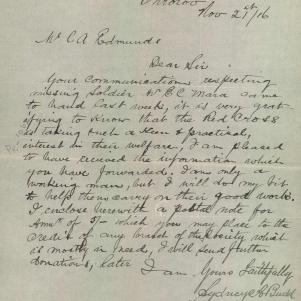 Nov 21st/16
Mr C A Edmunds
Dear Sir
Your communication respecting
missing Soldier W E C Mara came
to hand last week, it is very grat
ifying to know that the Red Cross
is taking such a Keen & practical
interest in their welfare, I am pleased
to have received the information which
you have forwarded, I am only a
working man, but I will do my bit
to help them carry on their good work.
I enclose herewith a postal note for
Amt of 5/- which you may place to the
credit of any branch of the Society which
is mostly in need, I will send further
Donations, later
I am Yours Faithfully
Sydney